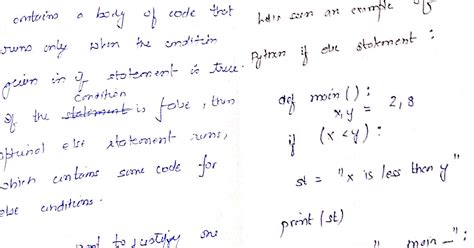 contains a body of code that
runs only when the condition
given in if statement is true.
condition
If the statement is false, then
optional else statement runs,
which contains some code for
else conditions.
to justify
seen an example of
Python if else statement :
def main():
x, y = 2, 8
if (x < y) :
st = "x is less then y"
print (st)
main